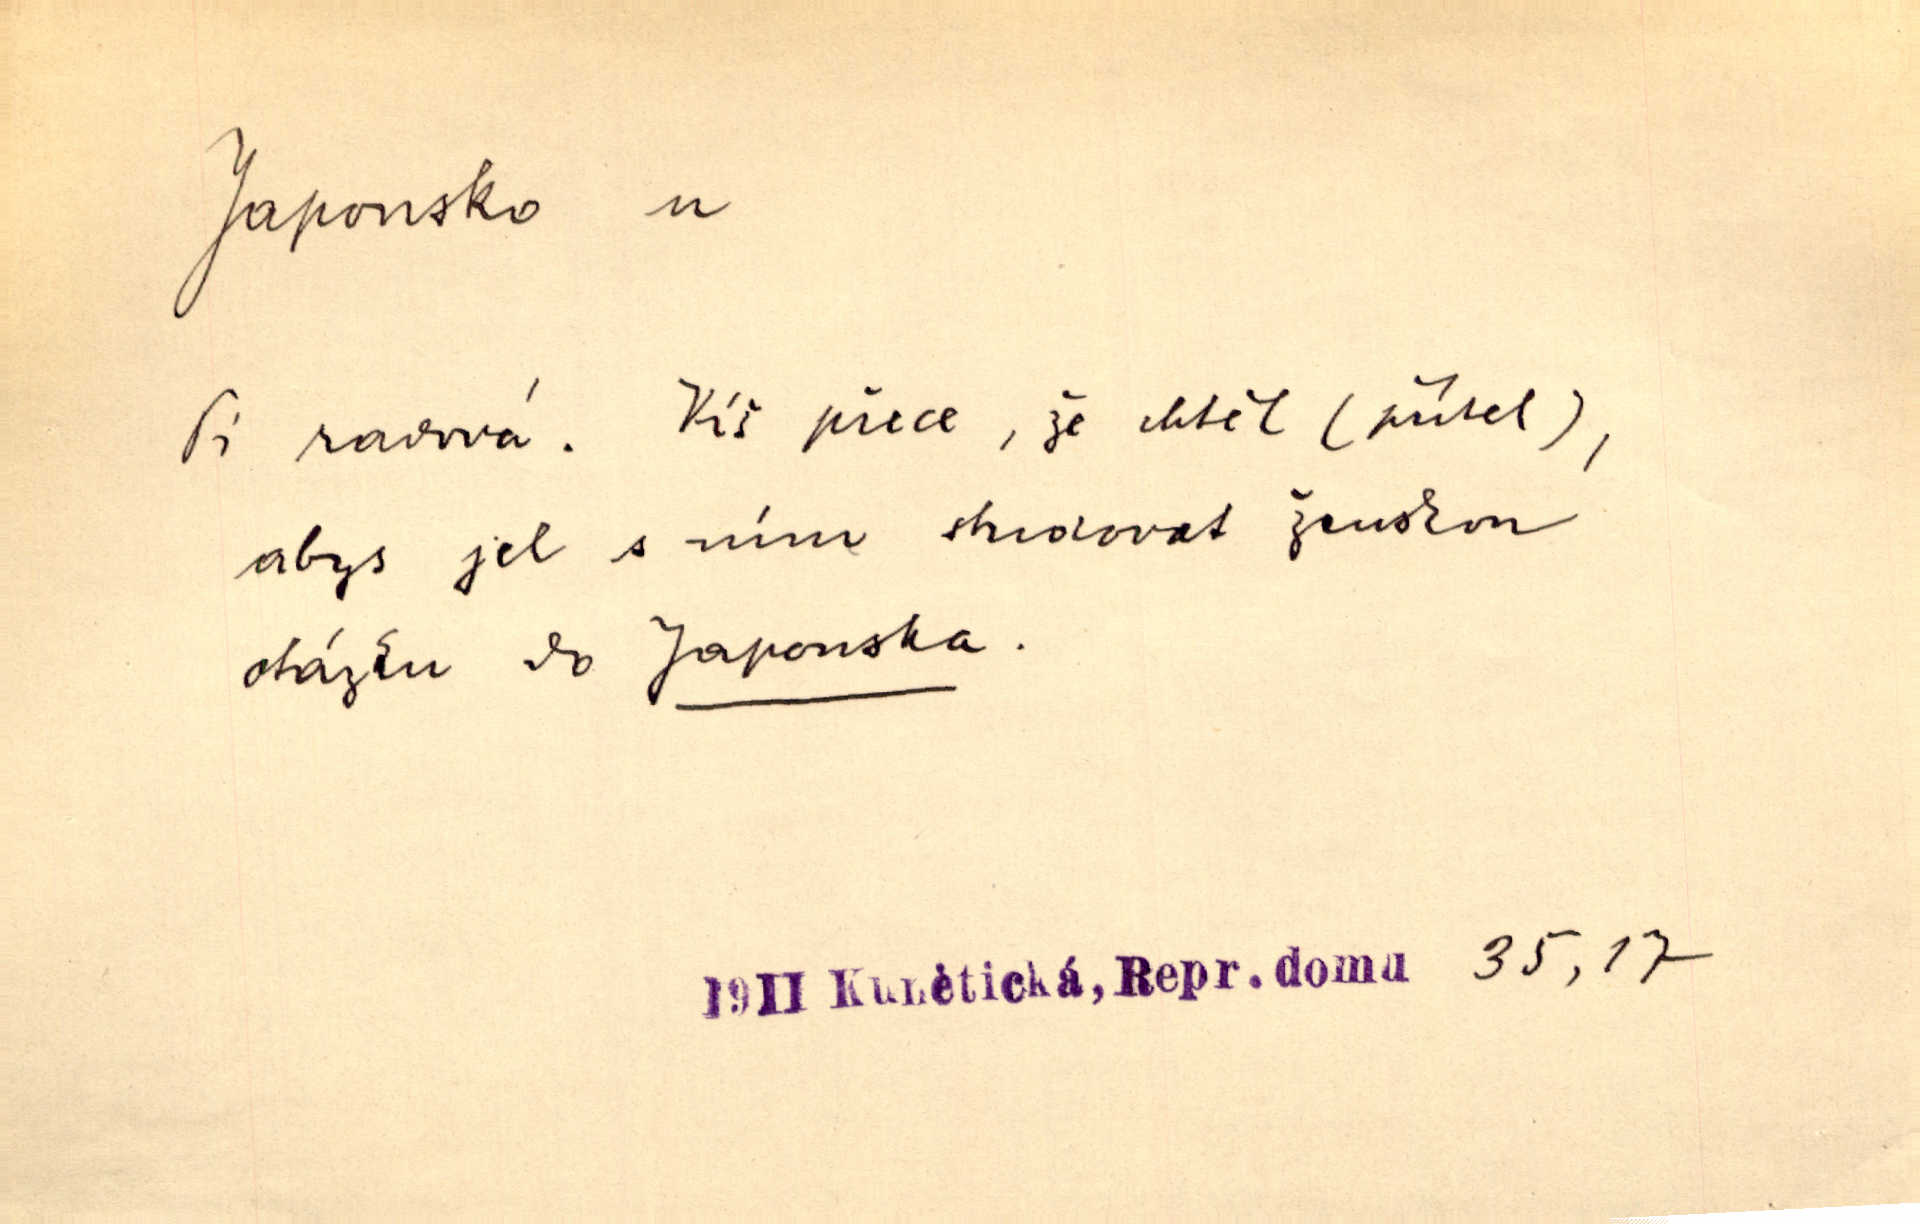 Japonsko n
Pí radová. Víš přece, že chtěl (přítel),
abys jel s ním studovat ženskou
otázku do Japonska.
1911 Kunětická, Repr. domu 35,17